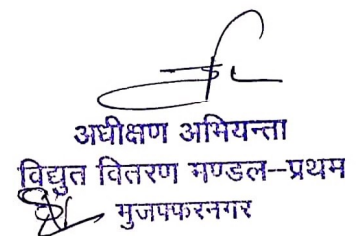 अधीक्षण अभियन्ता
विद्युत वितरण मण्डल--प्रथम
मुजफ्फरनगर